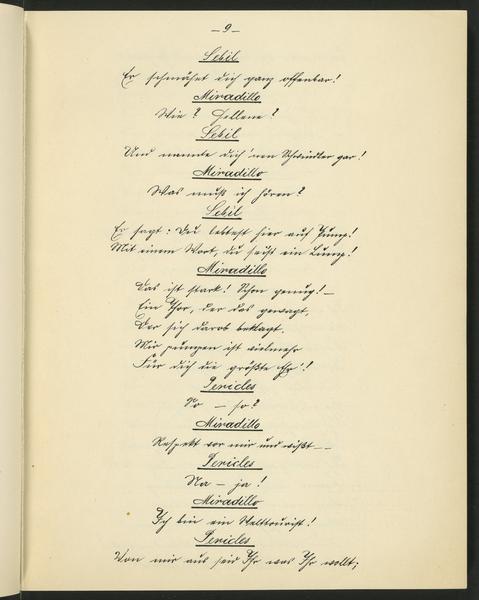 — 9 —
Sebil
Er schmähet dich ganz offenbar!
Miradillo
Wie? Hellene?
Sebil
Und nannte dich 'nen Schwindler gar!
Miradillo
Was muß ich hören?
Sebil
Er sagt: Du lebtest hier auf Pump!
Mit einem Wort, du seist ein Lump!
Miradillo
Das ist stark! Schon genug! —
Ein Thor, der das gewagt,
Der sich darob beklagt.
Mir pumpen ist vielmehr
Für dich die größte Ehr'!
Pericles
So — so?
Miradillo
Respekt vor mir und wißt — —
Pericles
Na — ja!
Miradillo
Ich bin ein Welttourist!
Pericles
Von mir aus seid Ihr was Ihr wollt;